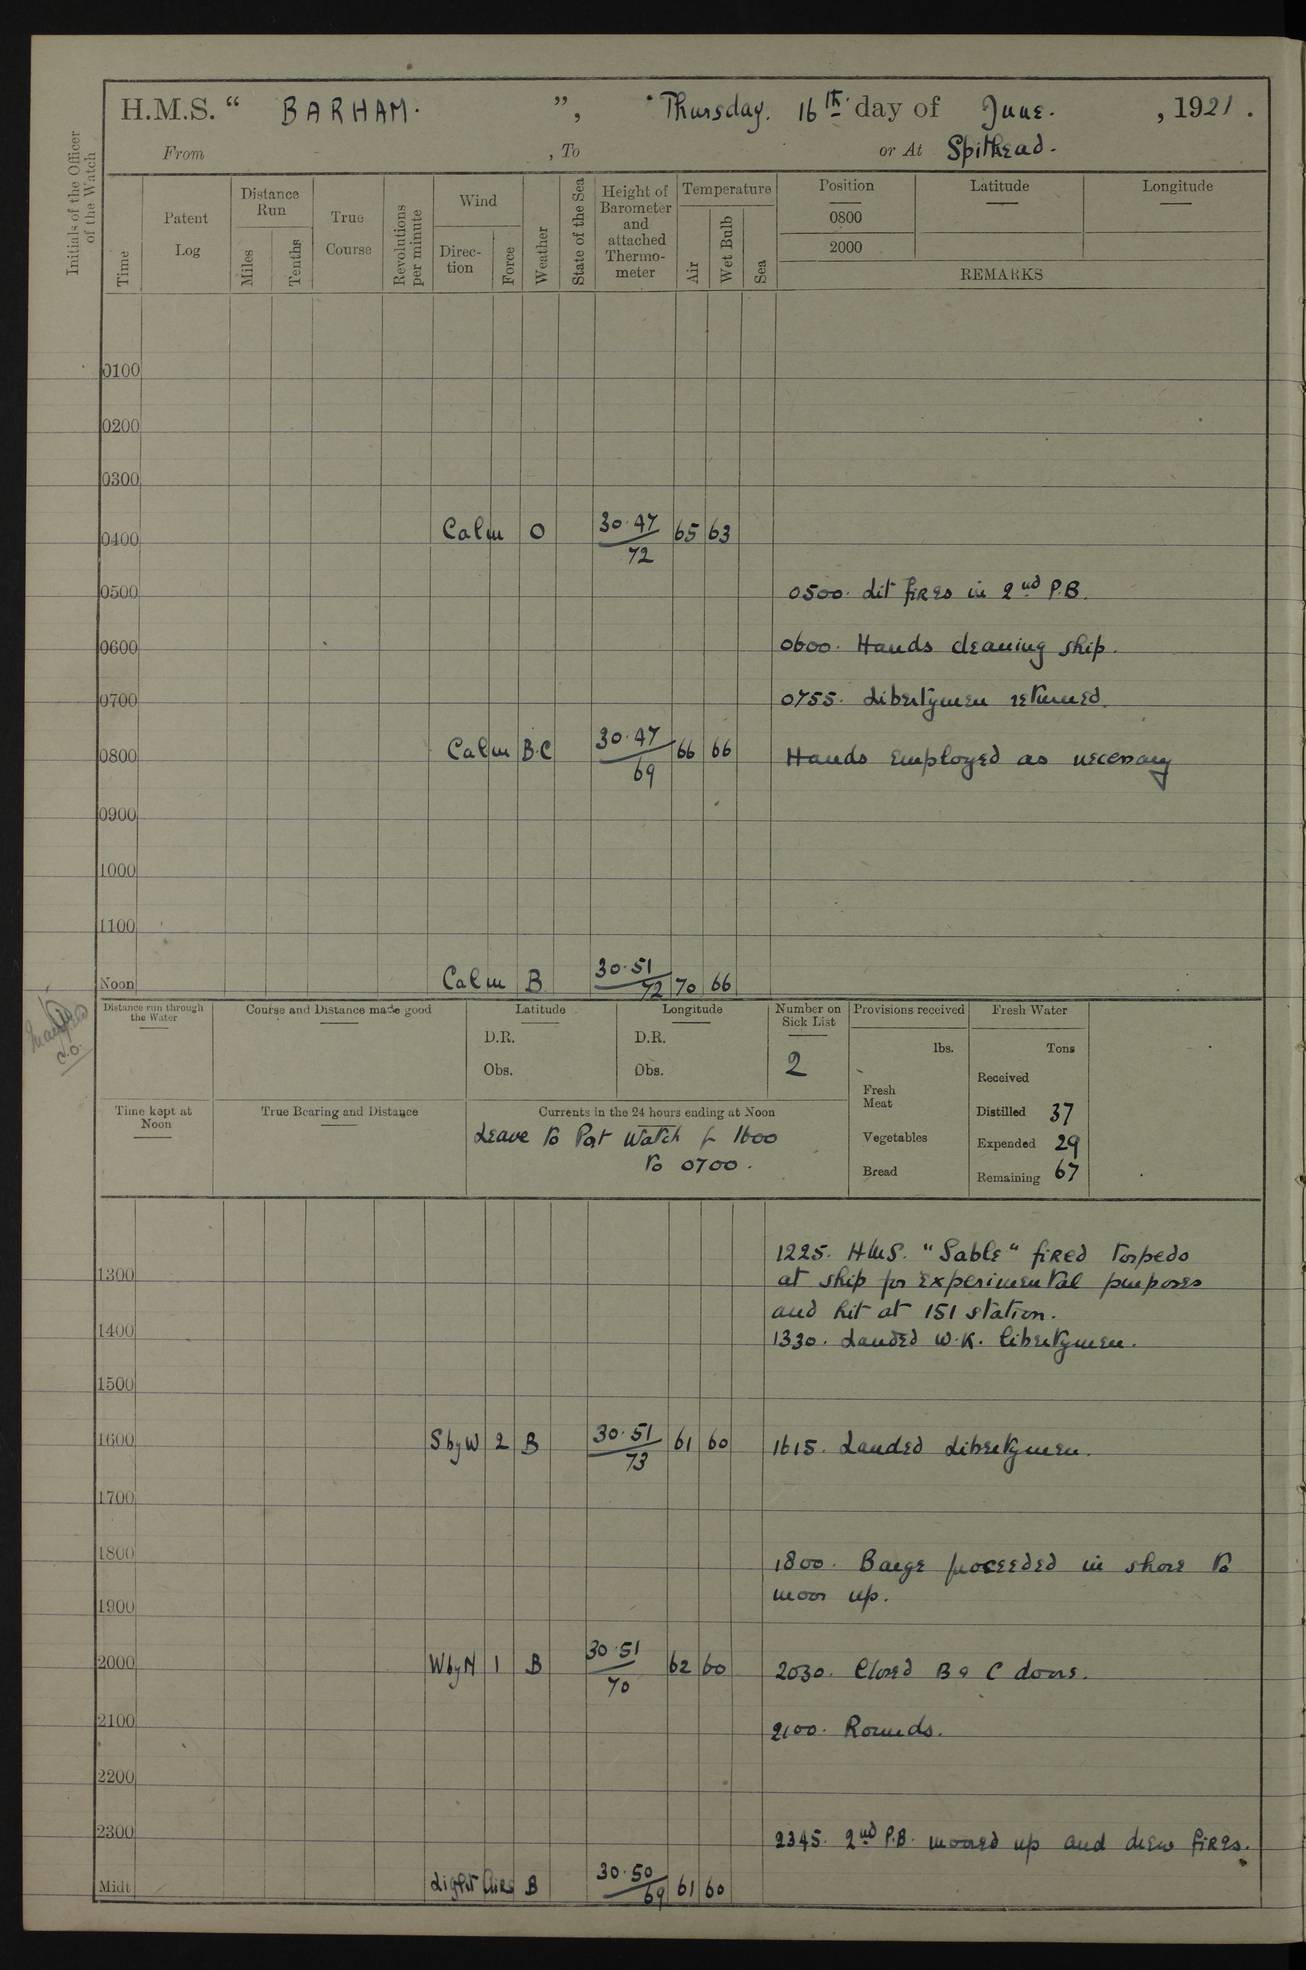 H.M.S. “ BARHAM. ”, Thursday. 16th day of June. , 1921.
From , To or At Spithead.
Initials of the Officer of the Watch
Time
Patent Log
Distance Run
Miles
Tenths
True Course
Revolutions per minute
Wind
Direc-tion
Force
Weather
State of the Sea
Height of Barometer and attached Thermo-meter
Temperature
Air
Wet Bulb
Sea
Position Latitude Longitude
0800
2000
REMARKS
0100
0200
0300
0400 Calm O 30.47/72 65 63
0500 0500. Lit fires in 2nd P.B.
0600 0600. Hands cleaning ship.
0700 0755. Libertymen returned.
0800 Calm B.C 30.47/69 66 66 Hands employed as necessary
0900
1000
1100
Noon Calm B 30.51/72 70 66
Distance run through the Water
Course and Distance made good
Latitude
D.R.
Obs.
Longitude
D.R.
Obs.
Number on Sick List
2
Provisions received
lbs.
Fresh Meat
Vegetables
Bread
Fresh Water
Tons
Received
Distilled 37
Expended 29
Remaining 67
Time kept at Noon
True Bearing and Distance
Currents in the 24 hours ending at Noon
Leave to Port Watch fr 1600
to 0700.
1225. H.M.S. “Sable” fired torpedo
1300 at ship for experimental purposes
and hit at 151 station.
1400 1330. Landed W.K. libertymen.
1500
1600 S by W 2 B 30.51/73 61 60 1615. Landed libertymen.
1700
1800 1800. Barge proceeded in shore to
1900 moor up.
2000 W by N 1 B 30.51/70 62 60 2030. Closed B & C doors.
2100 2100. Rounds.
2200
2300 2345. 2nd P.B. moored up and drew fires.
Midt Light Airs B 30.50/69 61 60